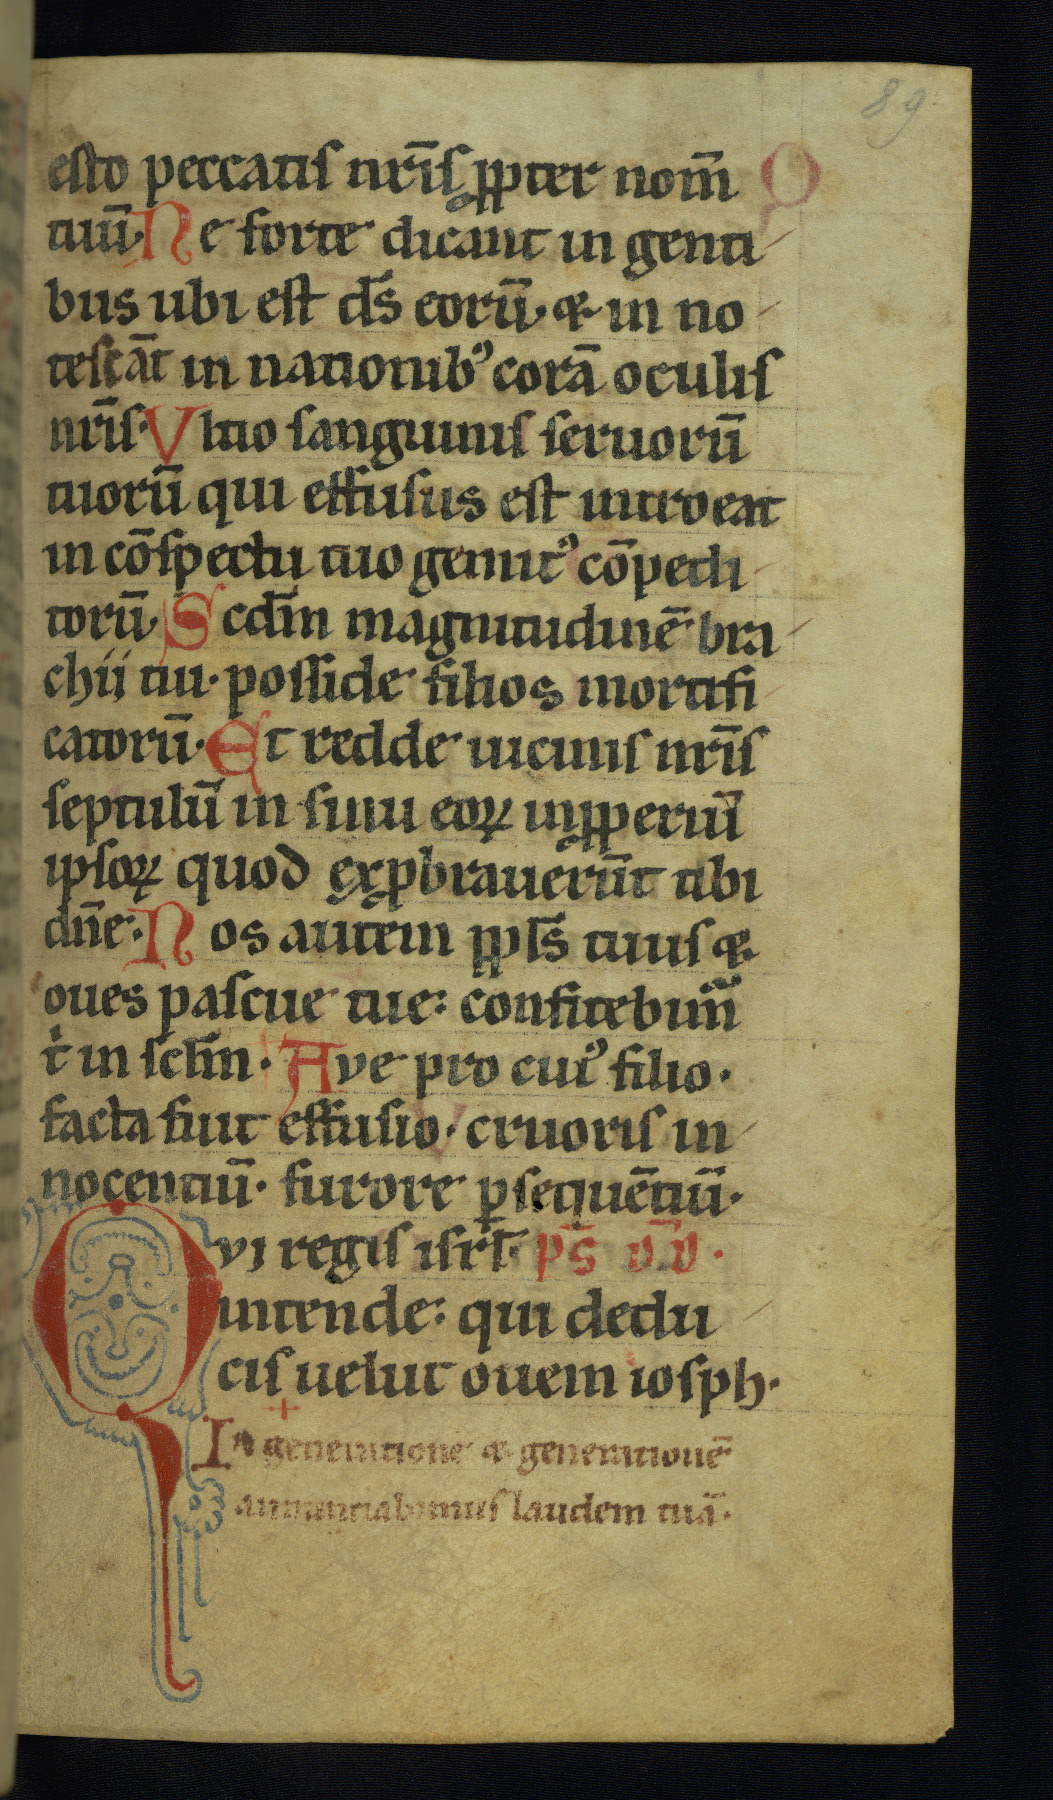 89.
esto peccatis nr̄is ꝓpter nom̄
tuū. Ne forte dicant in genti
bus ubi est ds̄ eorū. & in no
tescāt in nationibꝰ corā oculis
nr̄is. Vltio sanguinis seruorū
tuorū qui effusus est introeat
in cōspectu tuo gemitꝰ cōpedi
torū. Scdm̄ magnitudinē bra
chii tui. posside filios mortifi
catorū. Et redde uicinis nr̄is
septulū in sinu eoꝝ inꝓperiū
ipsoꝝ quod exꝓbrauerūt tibi
dn̄e. Nos autem ppl̄s tuus &
oues pascue tue: confitebim̄
t in sclm̄. Ave pro cuiꝰ filio.
facta fuit effusio. cruoris in
nocentiū. furore ꝑsequētiū.
Qvi regis isrl̄. ps̄ v̄v̄.
intende: qui dedu
cis uelut ouem iosph.
In generatione & generationē
annuntiabimus laudem tuā.